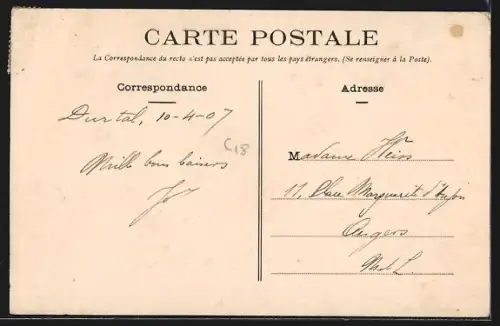 CARTE POSTALE
La Correspondance du recto n'est pas acceptée par tous les pays étrangers. (Se renseigner à la Poste).
Correspondance
Durtal, 10-4-07
C18
Mille bons baisers
Adresse
Madame Heiss
11, Place Marguerite d'Anjou
Angers
M&L.